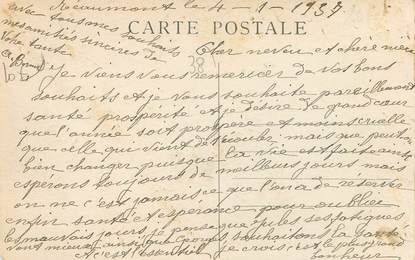 Réaumont le 4-1-1937
CARTE POSTALE
Cher neveu et chère nièce
Je viens vous remercier de vos bons
souhaits et je vous souhaite pareillement
santé prospérité et je désire de grand cœur
que l'année soit prospère et moins cruelle
que celle qui vient de mais que peut
bien changer puisque la vie est faite ainsi
esperons toujours de meilleurs jours mais
on ne c'est jamais ce que l'on a de réserve
enfin santé et espérance pour oublier
les mauvais jours je pense que les fatigues
vont mieux ainsi que Georges, souhaitons la santé
et c'est l'essentiel je crois c'est le plus grand
bonheur
avec tous mes souhaits
mes amitiés sincires de
Votre tante
38